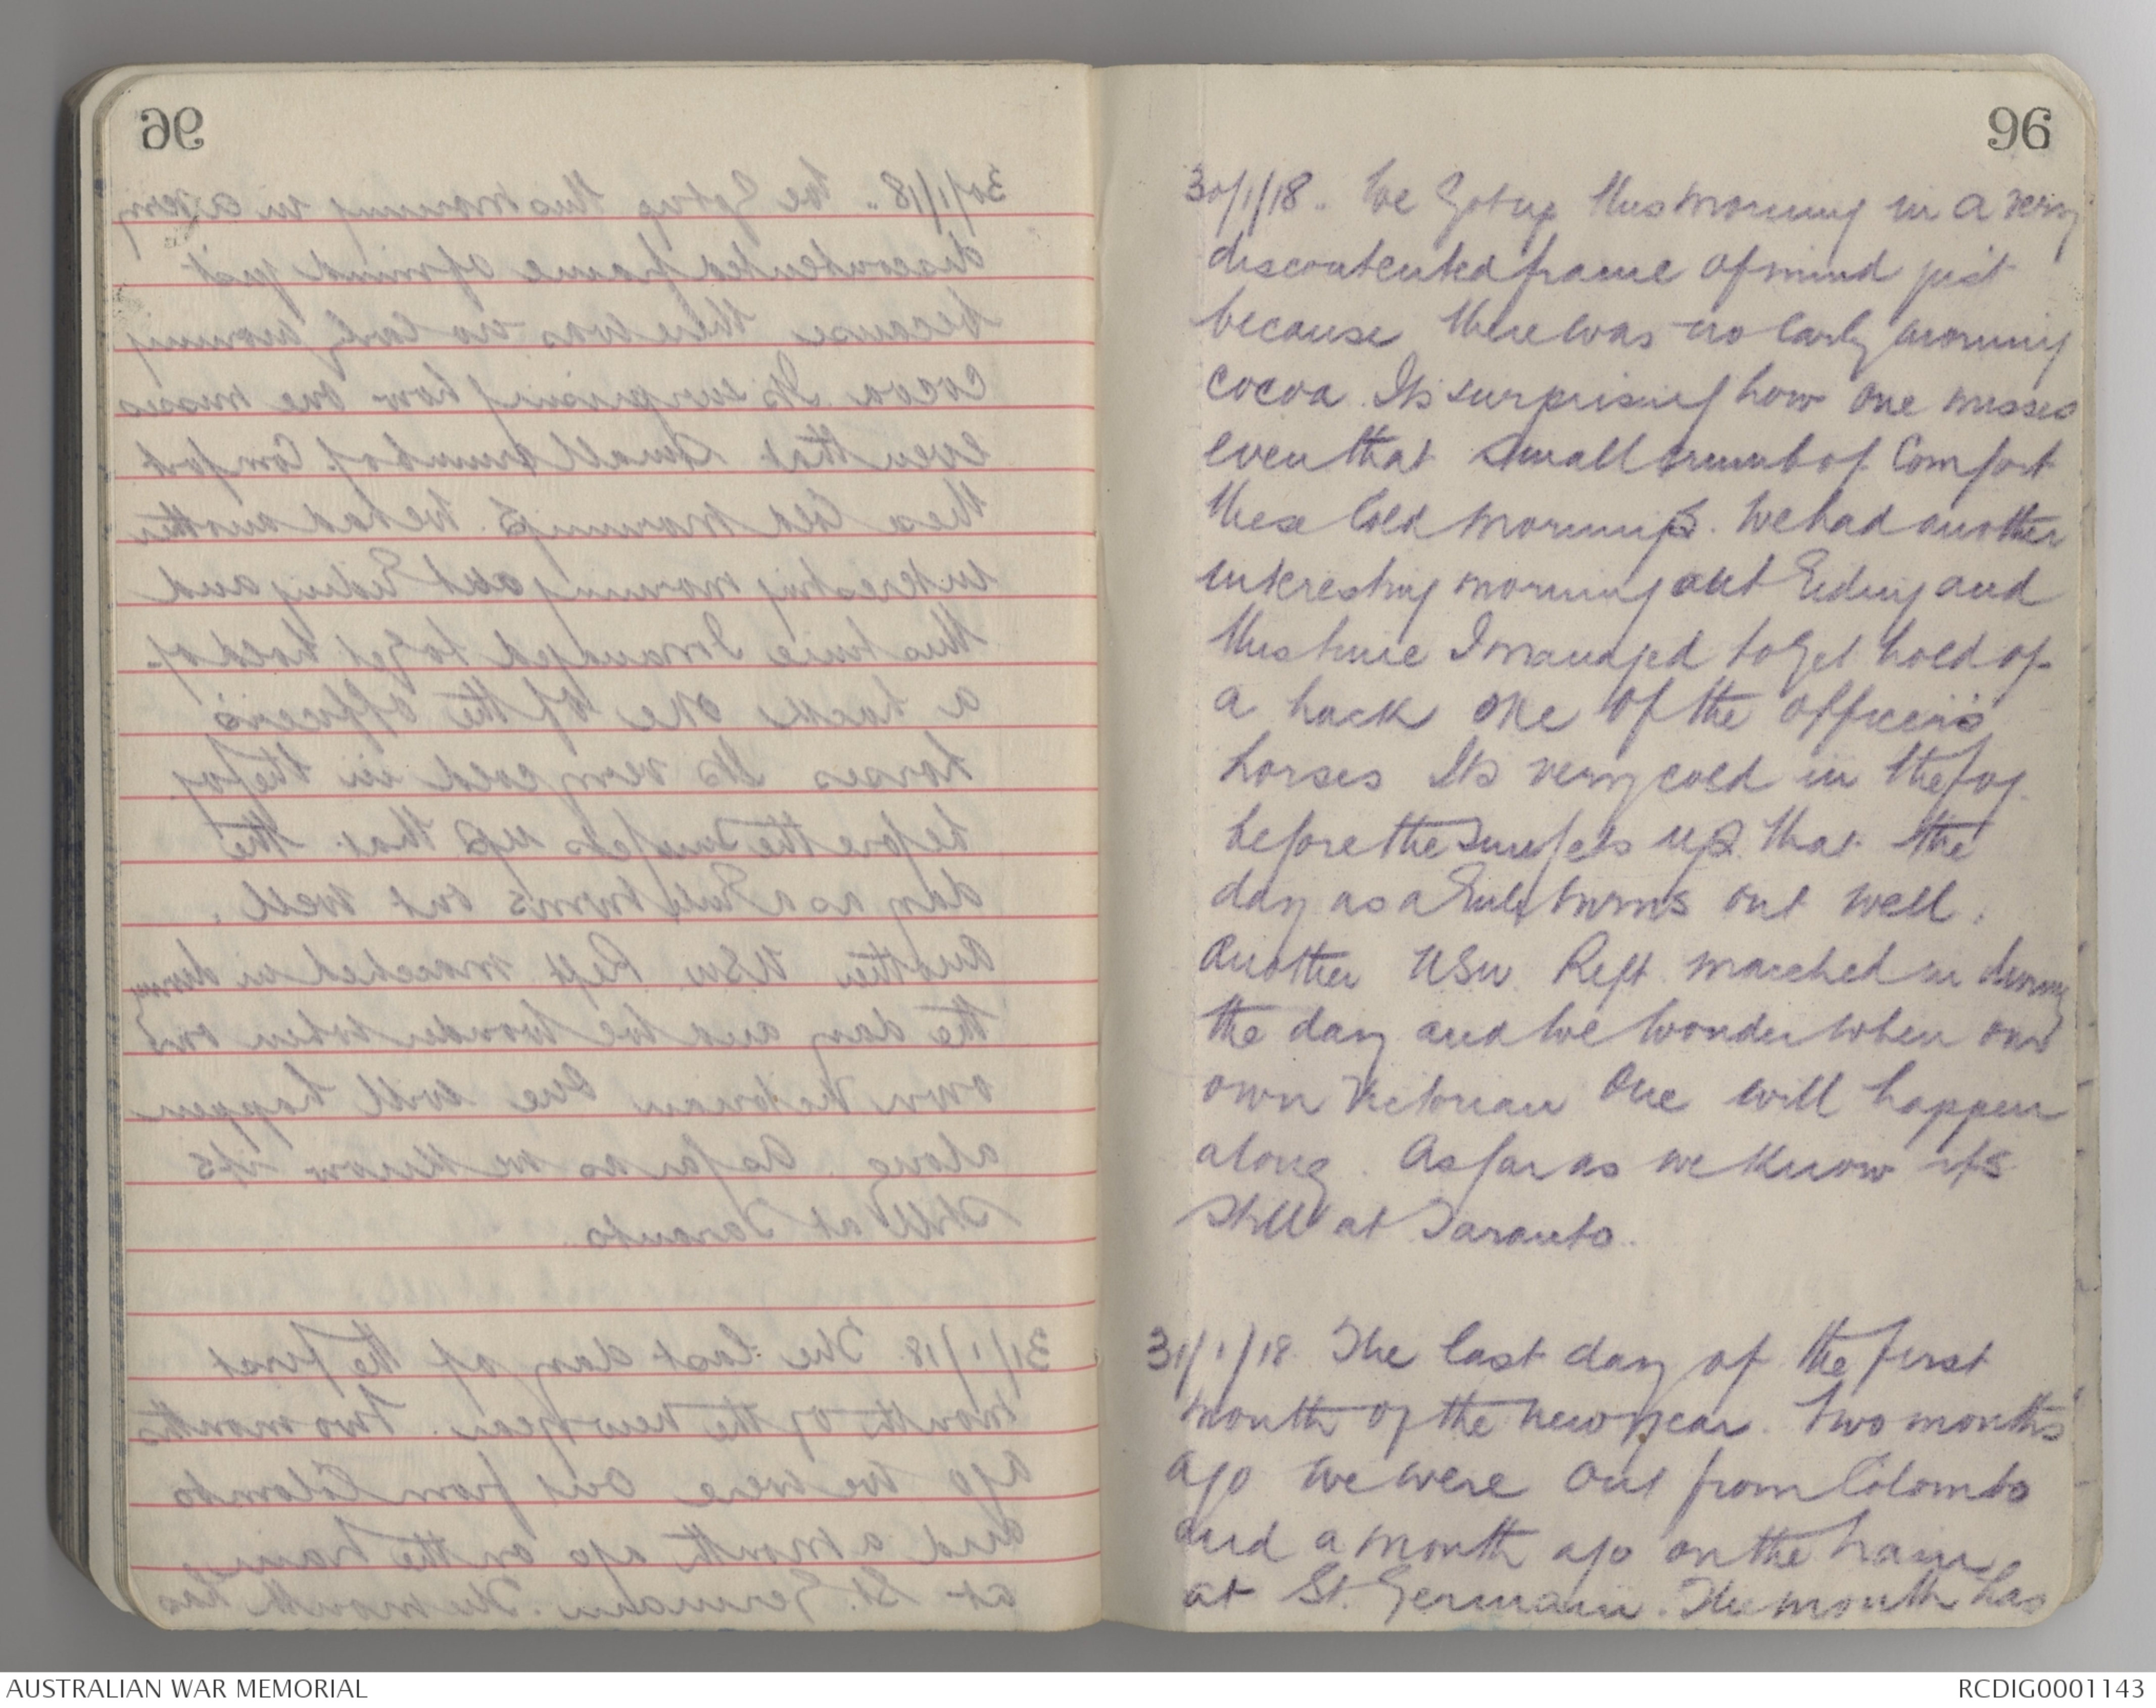 96
30/1/18.. We Got up this morning in a very
discontented frame of mind just
because there was no early morning
cocoa. Its surprising how one misses
even that small crumb of Comfort
these Cold mornings. We had another
interesting morning out Riding and
this time I managed to get hold of
a hack one of the officers
horses Its very cold in the fog
before the sun gets up. that the
day as a Rule turns out well.
Another NSW. Reft marched in during
the day and we wonder when our
own Victorian One will happen
along. As far as we know its
still at Taranto.
31/1/18. The last day of the first
month of the new year. Two months
ago we were Out from Colombo
and a month ago on the train
at St. Germain. The month has
AUSTRALIAN WAR MEMORIAL
RCDIG0001143